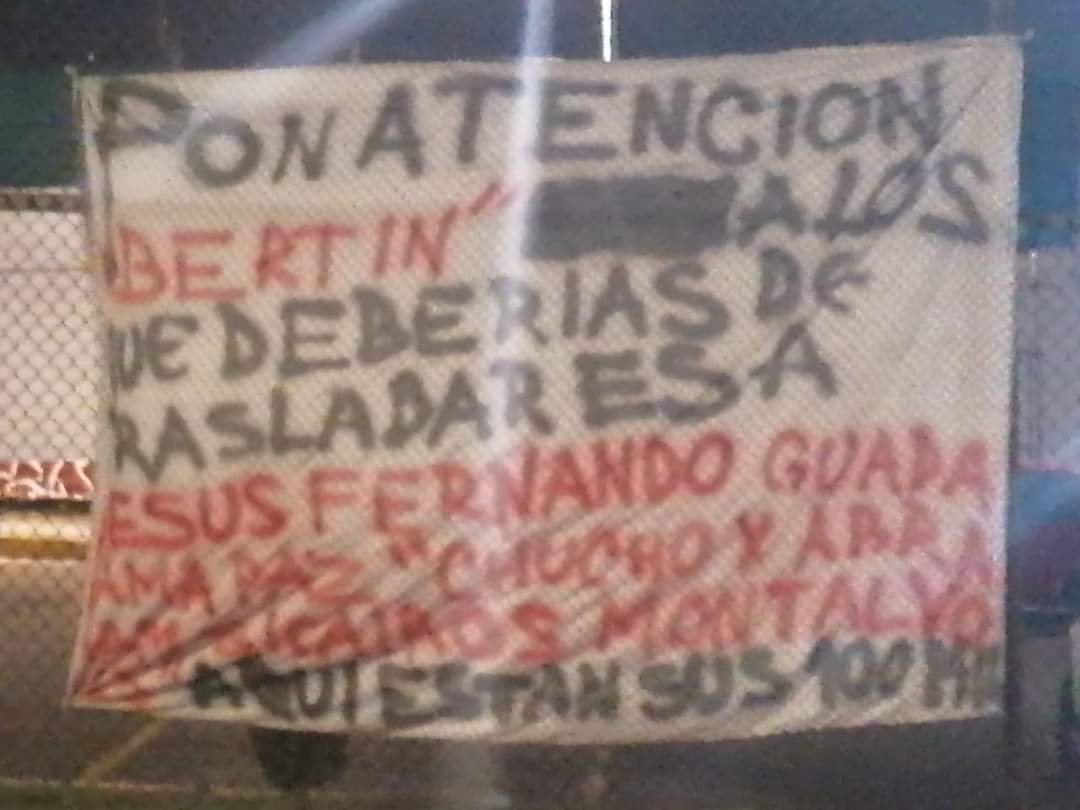 PON ATENCION
BERTIN" A LOS
UE DEBERIAS DE
RASLADAR ES A
ESUS FERNANDO GUADA
AMA PAZ "CHUCHO Y ABRA
MONTALVO
AQUI ESTAN SUS 100 MI